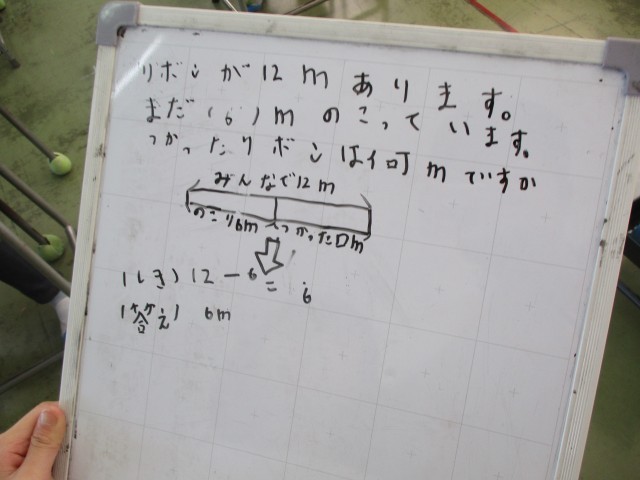 リボンが12mあります。
まだ(6)mのこっています。
つかったリボンは何mですか
みんなで12m
のこり6m つかった□m
(しき) 12－6＝6
(答え) 6m